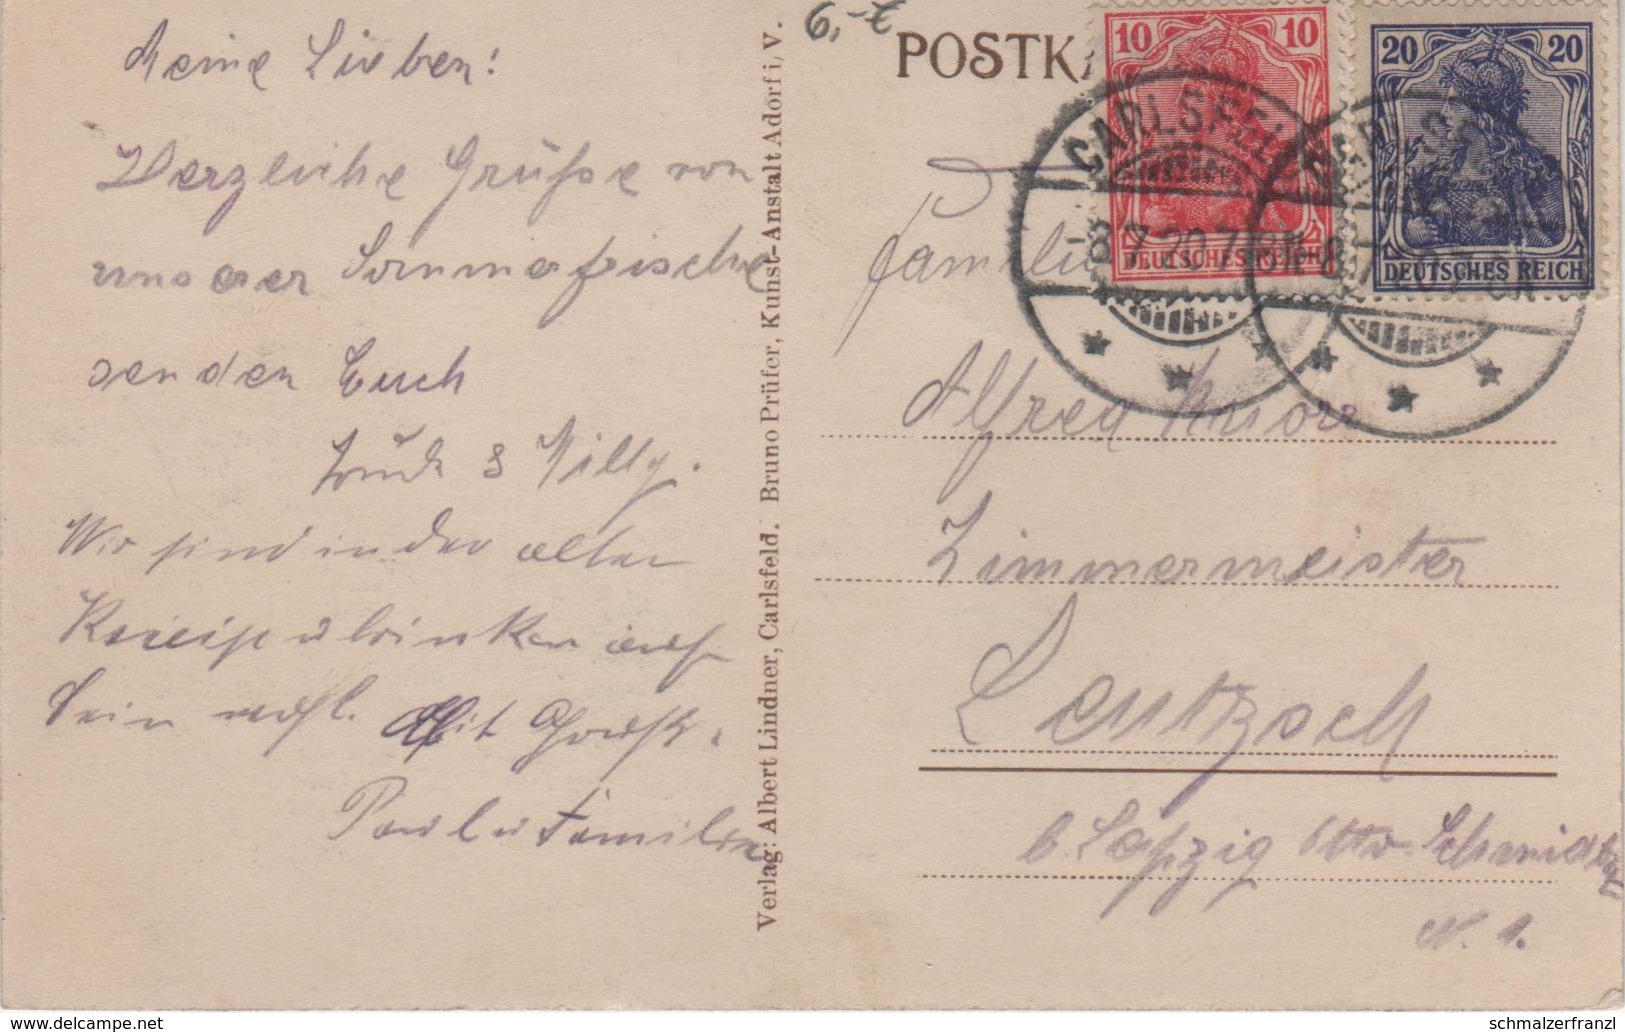 Meine Lieben!
Herzliche Grüße von
unserer Sommerfrische
senden Euch
Trude & Willy.
Wir sind in der alten
Kneipe u trinken auf
Dein Wohl. Mit Gruß.
Paul u Familie
Verlag: Albert Lindner, Carlsfeld. Bruno Prüfer, Kunst-Anstalt Adorf i, V.
6,-
POSTK
10 10
DEUTSCHES REICH
20 20
DEUTSCHES REICH
CARLSFELD
8.7.20.7-8N
Familie
Alfred
Zimmermeister
Leutzsch
b. Leipzig Otto Schmidtstr
N. 1.
delcampe.net
schmalzerfranzl